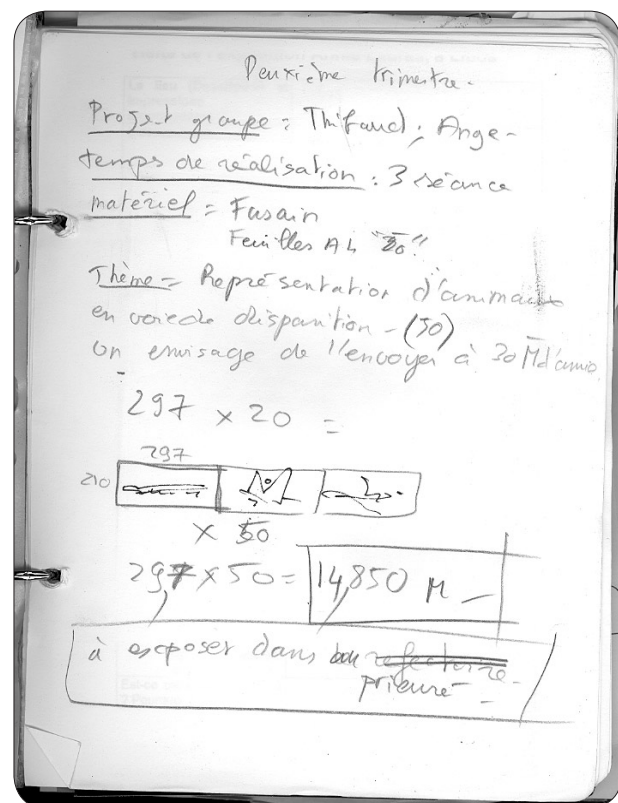 Deuxième trimestre.
Projet groupe = Thifaud, Ange-
temps de réalisation : 3 séance
matériel = Fusain
Feuilles A4 "20"
Thème = Représentation d'animaux
en voie de disparition - (50)
on envisage de l'envoyer à 30 M d'amis
297 x 20 =
297
210
x 50
297 x 50 = 14,850 M -
à exposer dans refectoire -
prieuré -